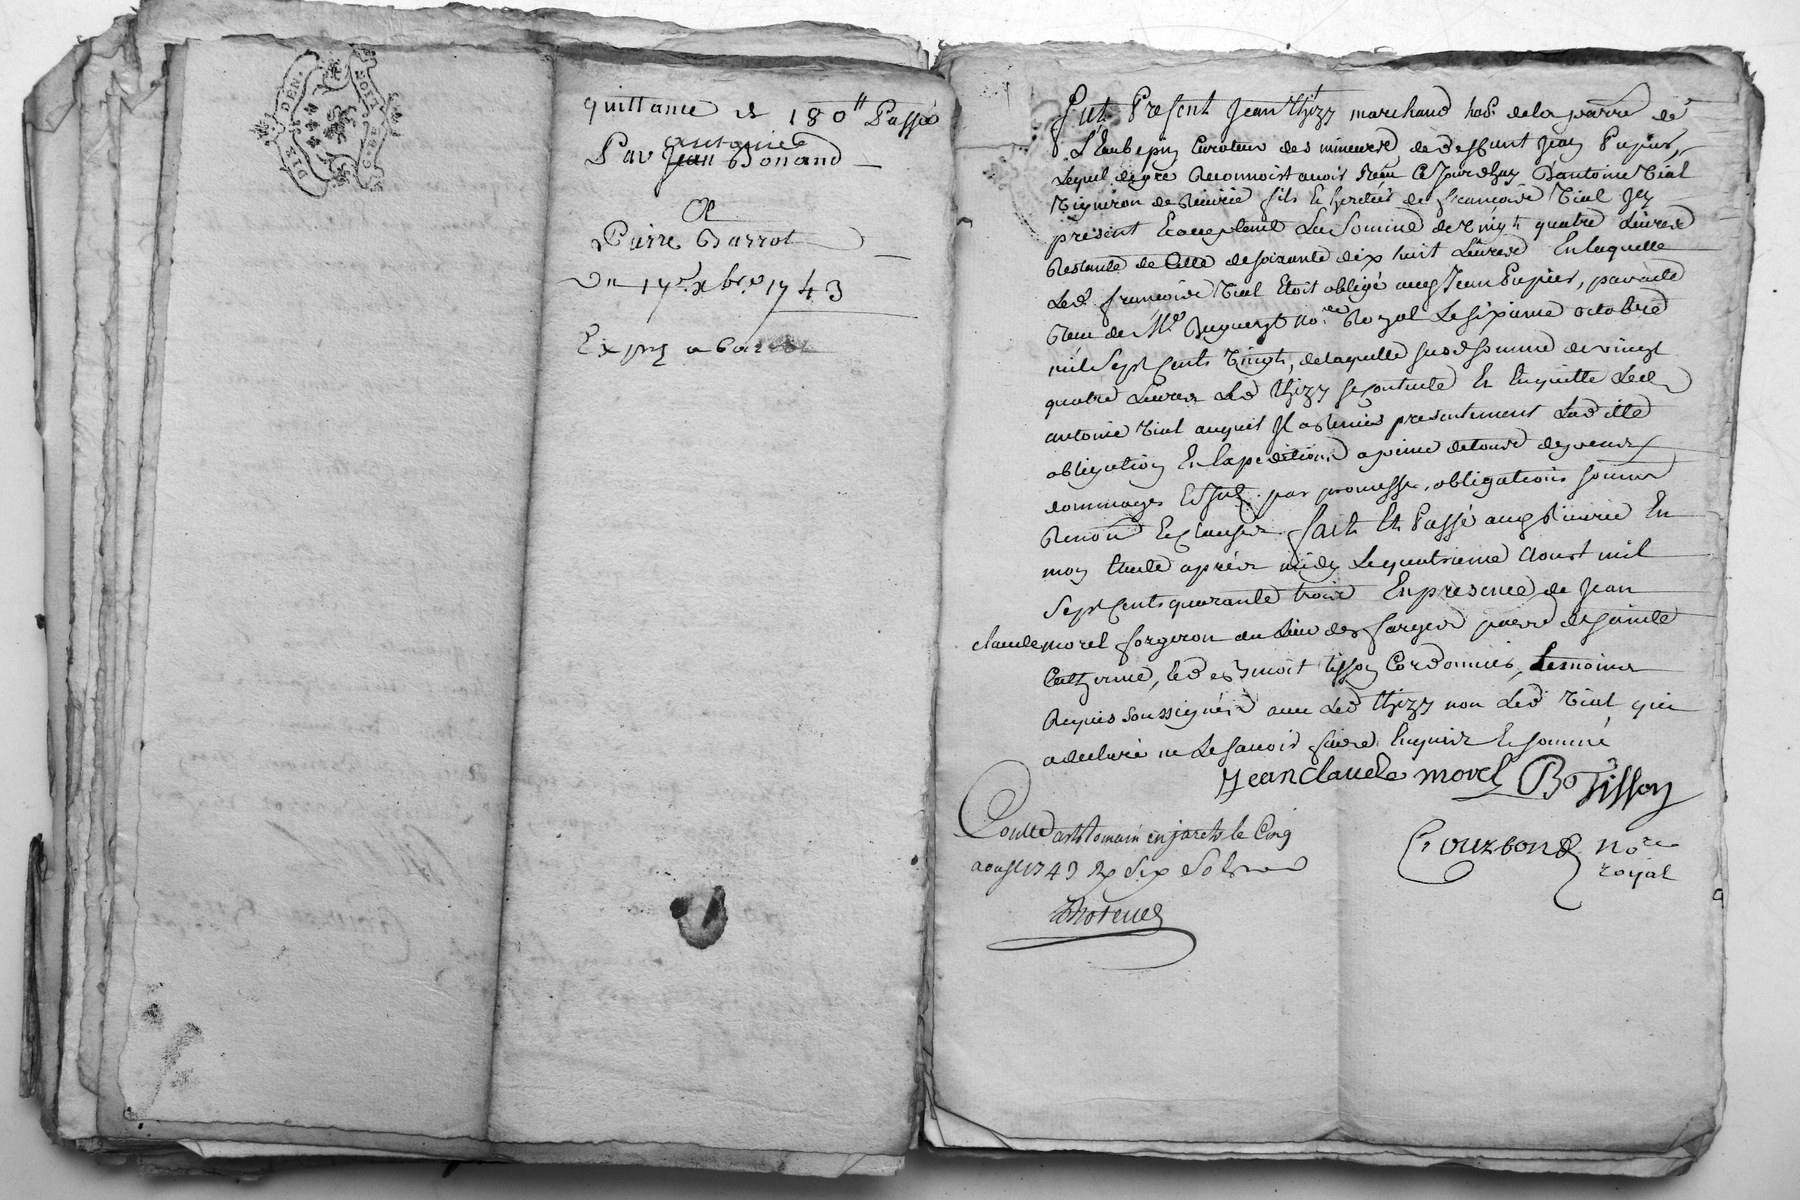 DIX DEN.
quittance de 180 ᵗᵗ Passé
antoine
Par Jean Bonand
A
Pierre Barrot
Du 17e xbre 1743
Exp
Fut Present Jean thizy marchand hab. de la parre de
L'Aubepin Curateur des mineurs de deffunt Jean Pupier,
Lequel de gre Reconnoist avoir Receu Ce Jourdhuy D'antoine Vial
Vigneron de Riverie fils et heritier de francoise Vial Icy
présent Et acceptant La Somme de Vingt quatre Livres
Restante de Celle de soixante dix huit Livres En laquelle
Lad. francoise Vial Etoit obligé aud Jean Pupier, par acte
Receu de Me no.re Royal Le sixieme octobre
mil Sept Cents Vingt, de laquelle susd somme de vingt
quatre Livres Led thizy se contente Et En quitte Led
antoine Vial auquel Il a Remis presentement Lad
obligation En Expedition a peine de tous depens
dommages Et par promesse, obligations soumis
Renon Et Clauses fait Et Passé aud Riverie En
mon Etude aprés midy Le quatrieme Aoust mil
Sept Cents quarante trois En presence de Jean
claude morel forgeron du Lieu des farges parre de sainte
Catherine, et de Benoit tisson Cordonnier, temoins
Requis soussignés avec Led thizy non Led Vial qui
a declaré ne Le savoir faire Enquis Et sommé
Jean claude morel B tisson
Conttrolé a st Romain en jarets le Cinq
aoust 1743 Rx Six Sols
Crouzbond no.re
royal